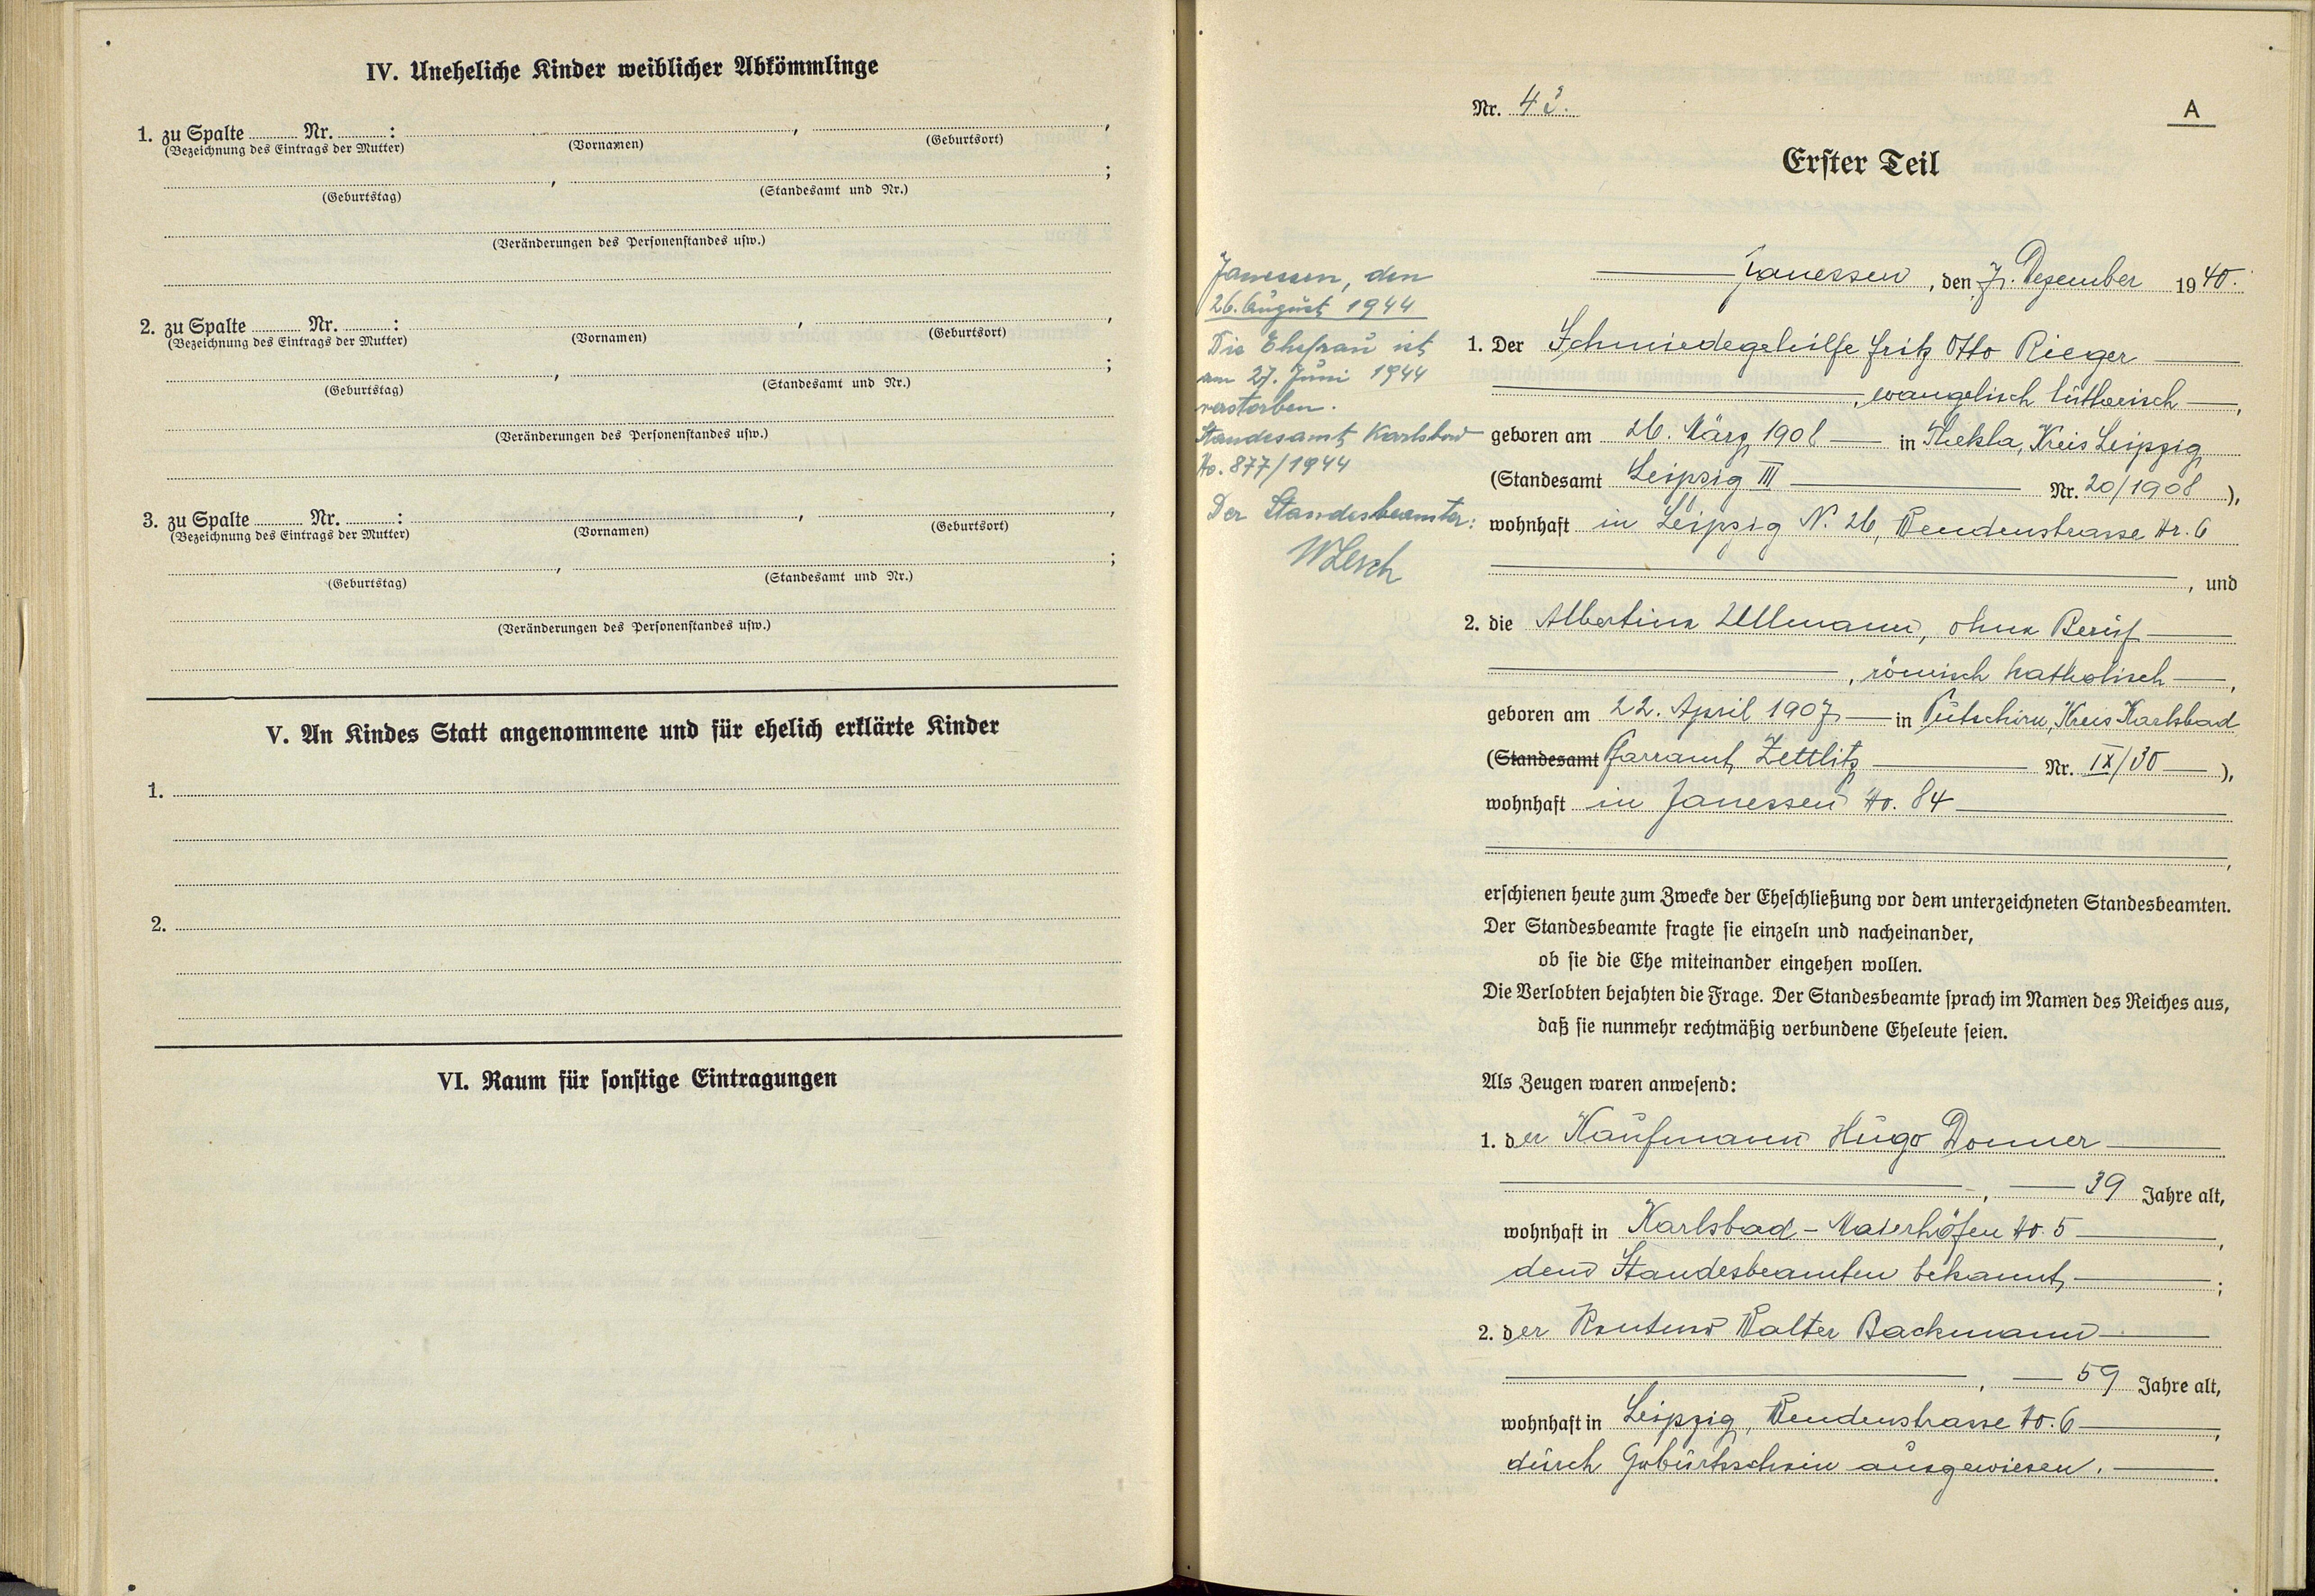 IV. Uneheliche Kinder weiblicher Abkömmlinge
1. zu Spalte Nr. : , ,
(Bezeichnung des Eintrags der Mutter) (Vornamen) (Geburtsort)
, ;
(Geburtstag) (Standesamt und Nr.)
(Veränderungen des Personenstandes usw.)
2. zu Spalte Nr. : , ,
(Bezeichnung des Eintrags der Mutter) (Vornamen) (Geburtsort)
, ;
(Geburtstag) (Standesamt und Nr.)
(Veränderungen des Personenstandes usw.)
3. zu Spalte Nr. : , ,
(Bezeichnung des Eintrags der Mutter) (Vornamen) (Geburtsort)
, ;
(Geburtstag) (Standesamt und Nr.)
(Veränderungen des Personenstandes usw.)
V. An Kindes Statt angenommene und für ehelich erklärte Kinder
1.
2.
VI. Raum für sonstige Eintragungen
Nr. 42.
A
Erster Teil
Janessen, den
26. August 1944
Die Ehefrau ist
am 27. Juni 1944
verstorben.
Standesamt Karlsbad
No. 877/1944
Der Standesbeamte:
WLerch
Janessen, den 7. Dezember 1940.
1. Der Schmiedegehilfe Fritz Otto Rieger
, evangelisch lutherisch ,
geboren am 26. März 1908 in Thekla, Kreis Leipzig
(Standesamt Leipzig III Nr. 20/1908 ),
wohnhaft in Leipzig N. 26, Wendenstrasse Nr. 6
, und
2. die Albertine Ullmann, ohne Beruf
, römisch katholisch ,
geboren am 22. April 1907 in Putschirn, Kreis Karlsbad
(Standesamt Pfarramt Zettlitz Nr. IX/30 ),
wohnhaft in Janessen No. 84
,
erschienen heute zum Zwecke der Eheschließung vor dem unterzeichneten Standesbeamten.
Der Standesbeamte fragte sie einzeln und nacheinander,
ob sie die Ehe miteinander eingehen wollen.
Die Verlobten bejahten die Frage. Der Standesbeamte sprach im Namen des Reiches aus,
daß sie nunmehr rechtmäßig verbundene Eheleute seien.
Als Zeugen waren anwesend:
1. der Kaufmann Hugo Donner
, 39 Jahre alt,
wohnhaft in Karlsbad - Maierhöfen No. 5 ,
dem Standesbeamten bekannt, ;
2. der Rentner Walter Backmann
, 59 Jahre alt,
wohnhaft in Leipzig, Wendenstrasse No. 6 ,
durch Geburtsschein ausgewiesen. .